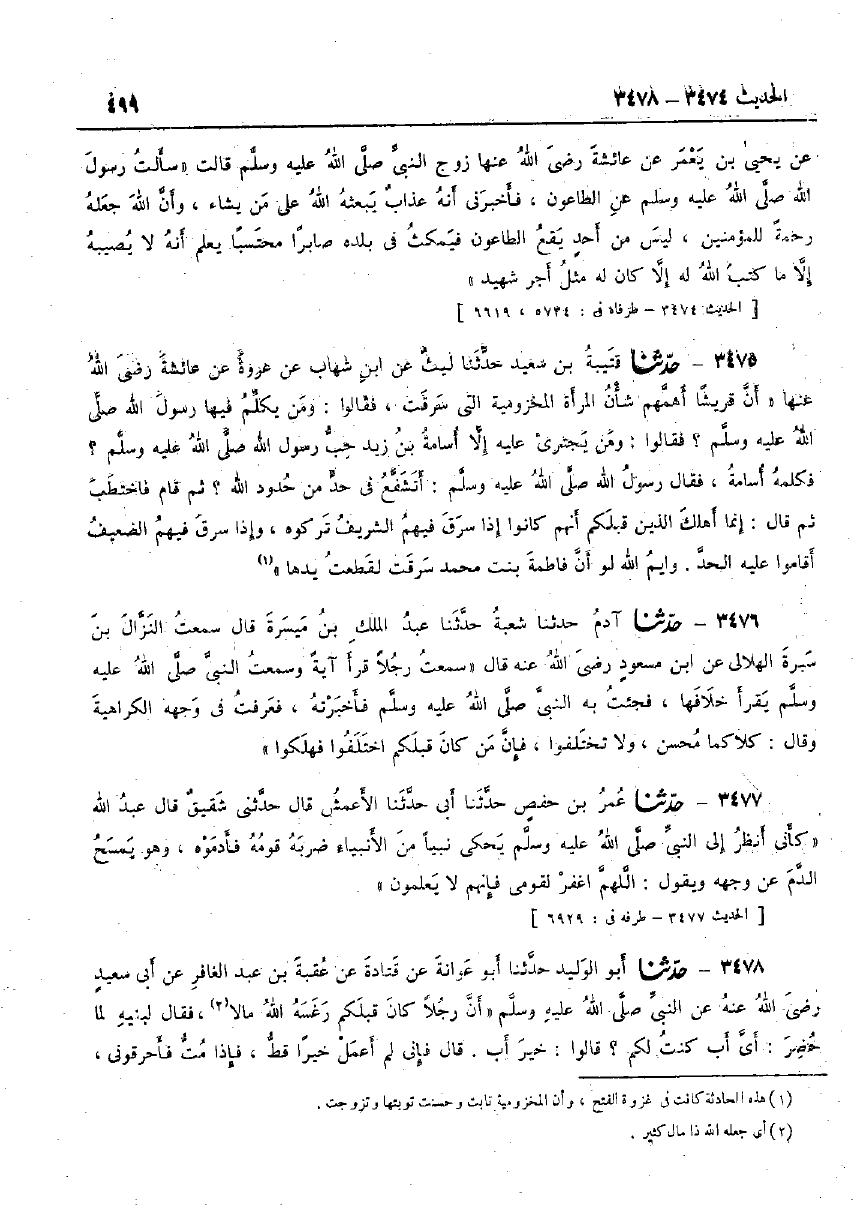 الحديث ٣٤٧٤ – ٣٤٧٨
٤٩٩
عن يحيىٰ بن يَعْمَر عن عائشةَ رضىَ اللهُ عنها زوج النبيِّ صلَّى اللهُ عليه وسلَّم قالت «سألتُ رسولَ
الله صلَّى اللهُ عليه وسلم عنِ الطاعون ، فأخبرَنى أنهُ عذابٌ يَبعثهُ اللهُ على مَن يشاء ، وأنَّ اللهَ جعلهُ
رحمةً للمؤمنين ، ليسَ من أحدٍ يَقعُ الطاعون فيَمكثُ فى بلده صابرًا محتَسبًا يعلم أنهُ لا يُصيبهُ
إلَّا ما كتبَ اللهُ له إلَّا كان له مثلُ أجر شهيد»
[ الحديث ٣٤٧٤ – طرفاه فى : ٥٧٣٤ ، ٦٦١٩ ]
٣٤٧٥ – حدّثنا قتيبةُ بن سَعيد حدَّثَنا ليثٌ عن ابنِ شهاب عن عروةَ عن عائشةَ رضىَ اللهُ
عنها «أنَّ قريشًا أهمَّهم شأنُ المرأة المخزومية التى سَرقَت ، فقالوا : ومَن يكلِّمُ فيها رسولَ الله صلَّى
اللهُ عليه وسلَّم ؟ فقالوا : ومَن يَجترىْ عليه إلَّا أسامةُ بنُ زيد حِبُّ رسول الله صلَّى اللهُ عليه وسلَّم ؟
فكلمهُ أسامةُ ، فقال رسولُ الله صلَّى اللهُ عليه وسلَّم : أتَشفَّعُ فى حدٍّ من حُدود الله ؟ ثم قام فاختطَبَ
ثم قال : إنما أهلكَ الذين قبلَكم أنهم كانوا إذا سرَقَ فيهمُ الشريفُ تَركوه ، وإذا سرقَ فيهمُ الضعيفُ
أقاموا عليه الحدَّ . وايمُ الله لو أنَّ فاطمةَ بنت محمد سَرقَت لقَطعتُ يدها»(١)
٣٤٧٦ – حدّثنا آدمُ حدثنا شعبةُ حدَّثَنا عبدُ الملكِ بنُ مَيسرَةَ قال سمعتُ النَزَّالَ بنَ
سَبرةَ الهلالى عن ابن مسعودٍ رضىَ اللهُ عنه قال «سمعتُ رجُلاً قرأ آيةً وسمعتُ النبيَّ صلَّى اللهُ عليه
وسلَّم يَقرأ خلافَها ، فجئتُ به النبيَّ صلَّى اللهُ عليه وسلَّم فأخبَرْتهُ ، فعَرفتُ فى وَجههِ الكراهيةَ
وقال : كلاكما مُحسن ، ولا تختَلفوا ، فإنَّ مَن كانَ قبلَكم اختَلَفُوا فهلَكوا»
٣٤٧٧ – حدّثنا عُمرُ بن حفصٍ حدَّثَنا أبى حدَّثَنا الأعمشُ قال حدَّثنى شَقيقٌ قال عبدُ الله
«كأنِّى أنظرُ إلى النبيِّ صلَّى اللهُ عليه وسلَّم يَحكى نبياً منَ الأنبياء ضربَهُ قومُهُ فأدمَوْه ، وهو يَمسَحُ
الدَّمَ عن وجهه ويقول : اللَّهمَّ اغفرْ لقومى فإنهم لا يَعلمون»
[ الحديث ٣٤٧٧ – طرفه فى : ٦٩٢٩ ]
٣٤٧٨ – حدّثنا أبو الوَليد حدَّثنا أبو عَوانةَ عن قَتادةَ عن عُقبةَ بن عبد الغافرِ عن أبى سعيدٍ
رضىَ اللهُ عنهُ عن النبيِّ صلَّى اللهُ عليهِ وسلَّم «أنَّ رجُلاً كانَ قبلَكم رَغَسَهُ اللهُ مالا(٢) ، فقال لبَنيهِ لما
حُضِرَ : أىَّ أب كنتُ لكم ؟ قالوا : خيرَ أب . قال فإنى لم أعمَلْ خيرًا قطُّ ، فإذا مُتُّ فأحرقونى ،
(١) هذه الحادثة كانت فى غزوة الفتح ، وأن المخزومية تابت وحسنت توبتها وتزوجت .
(٢) أي جعله الله ذا مال كثير .